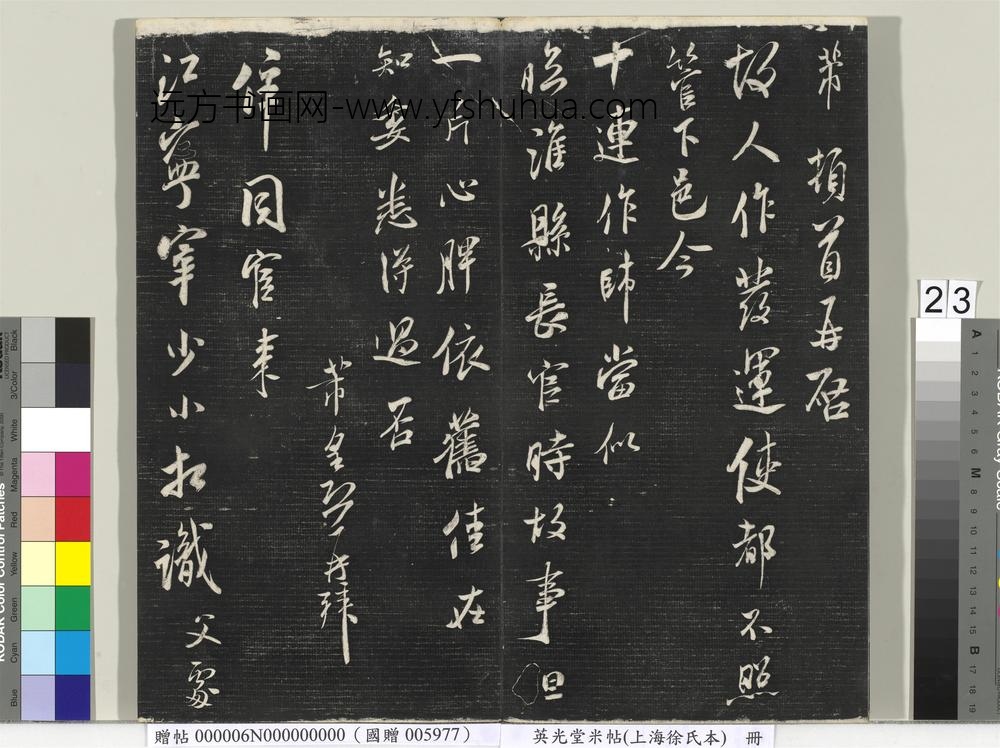 芾頓首再啓
故人作發運使都不照
管下邑今
十連作帥當似
臨淮縣長官時故事但
一片心脾依舊佳在
知委悉得過否
芾皇恐再拜
信到官来
江寧宰少小相識父處
远方书画网-www.yfshuhua.com
23
贈帖 000006N000000000（國贈 005977）
英光堂米帖(上海徐氏本) 冊
KODAK Color Control Patches
Blue
Cyan
Green
Yellow
Red
Magenta
White
3/Color
Black
A
1
2
3
4
5
6
M
8
9
10
11
12
13
14
15
B
17
18
19